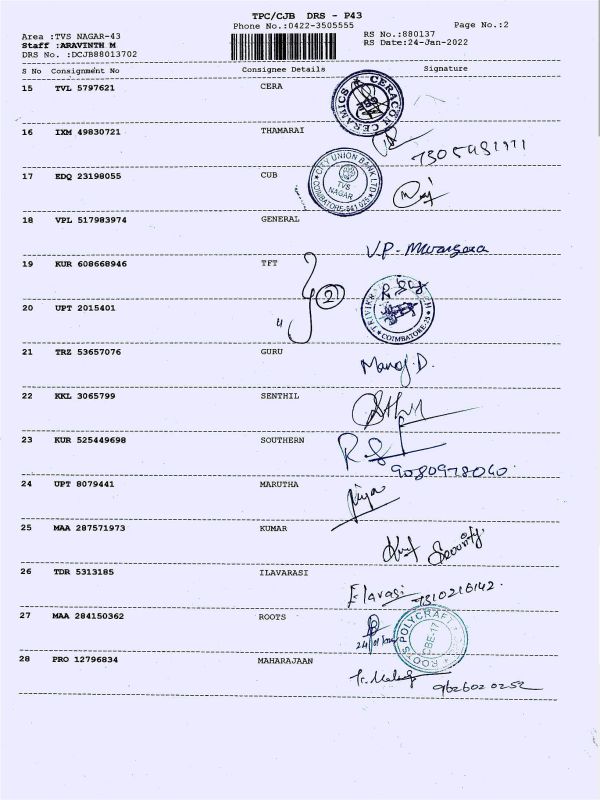 TPC/CJB DRS - P43
Phone No.:0422-3505555
Page No.:2
Area :TVS NAGAR-43
RS No.:880137
Staff :ARAVINTH M
RS Date:24-Jan-2022
DRS No. :DCJB88013702
S No Consignment No Consignee Details Signature
15 TVL 5797621 CERA
CERACON CERAMICS
16 IXM 49830721 THAMARAI
17 EDQ 23198055 CUB
CITY UNION BANK LTD
TVS
NAGAR
COIMBATORE-641 025
18 VPL 517983974 GENERAL
V.P-
19 KUR 608668946 TFT
2
20 UPT 2015401
"
COIMBATORE-25
21 TRZ 53657076 GURU
Manoj.D.
22 KKL 3065799 SENTHIL
23 KUR 525449698 SOUTHERN
9080978060
24 UPT 8079441 MARUTHA
Jiya
25 MAA 287571973 KUMAR
Security
26 TDR 5313185 ILAVARASI
Elavarasi
27 MAA 284150362 ROOTS
ROOTS POLYCRAFT
CBE-17
28 PRO 12796834 MAHARAJAAN
9626020252